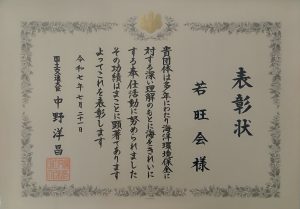 表彰状
若旺会様
貴団体は多年にわたり海洋環境保全に
対する深い理解のもとに海をきれいに
する奉仕活動に努められました
その功績はまことに顕著であります
よってこれを表彰します
令和七年七月二十一日
国土交通大臣 中野洋昌